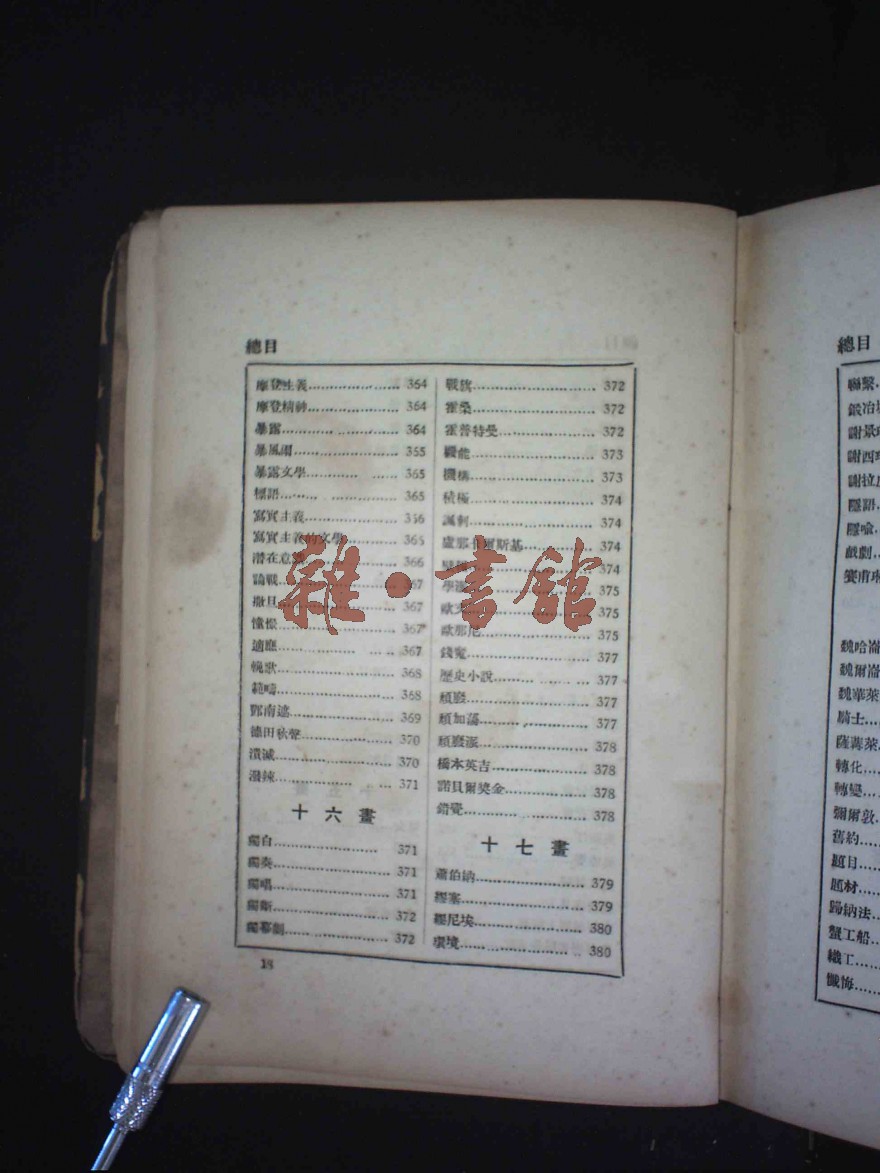 總目
摩登性義 364
摩登精神 364
暴露 364
暴風雨 365
暴露文學 365
標語 365
寫實主義 366
寫實主義的文學 365
潛在意識 366
論戰 367
撒旦 367
憧憬 367
適應 367
輓歌 368
範疇 368
鄧南遮 369
德田秋聲 370
潰滅 370
潑辣 371
十六畫
獨白 371
獨奏 371
獨唱 371
獨斷 372
獨幕劇 372
18
戰旗 372
霍桑 372
霍普特曼 372
機能 373
機構 373
積極 374
諷刺 374
盧那卡爾斯基 374
374
375
歐文 375
歐那尼 375
錢寬 377
歷史小說 377
頹廢 377
頹加蕩 377
頹廢派 378
橋本英吉 378
諾貝爾獎金 378
錯覺 378
十七畫
蕭伯納 379
379
繆尼埃 380
環境 380
雜·書館
總目
聯繫
隱語
隱喻
戲劇
騎士
轉化
轉變
彌爾敦
舊約
題目
題材
歸納法
蟹工船
織工
懺悔